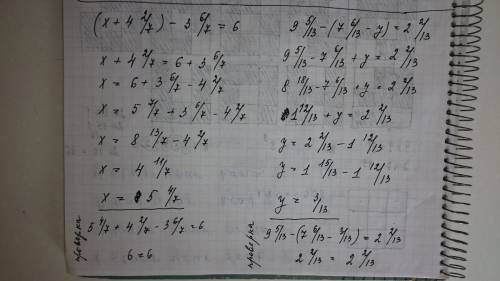 (x + 4 2/7) - 3 6/7 = 6
x + 4 2/7 = 6 + 3 6/7
x = 6 + 3 6/7 - 4 2/7
x = 5 7/7 + 3 6/7 - 4 2/7
x = 8 13/7 - 4 2/7
x = 4 11/7
x = 5 4/7
проверка
5 4/7 + 4 2/7 - 3 6/7 = 6
6 = 6
9 5/13 - (7 6/13 - y) = 2 2/13
9 5/13 - 7 6/13 + y = 2 2/13
8 18/13 - 7 6/13 + y = 2 2/13
1 12/13 + y = 2 2/13
y = 2 2/13 - 1 12/13
y = 1 15/13 - 1 12/13
y = 3/13
проверка
9 5/13 - (7 6/13 - 3/13) = 2 2/13
2 2/13 = 2 2/13